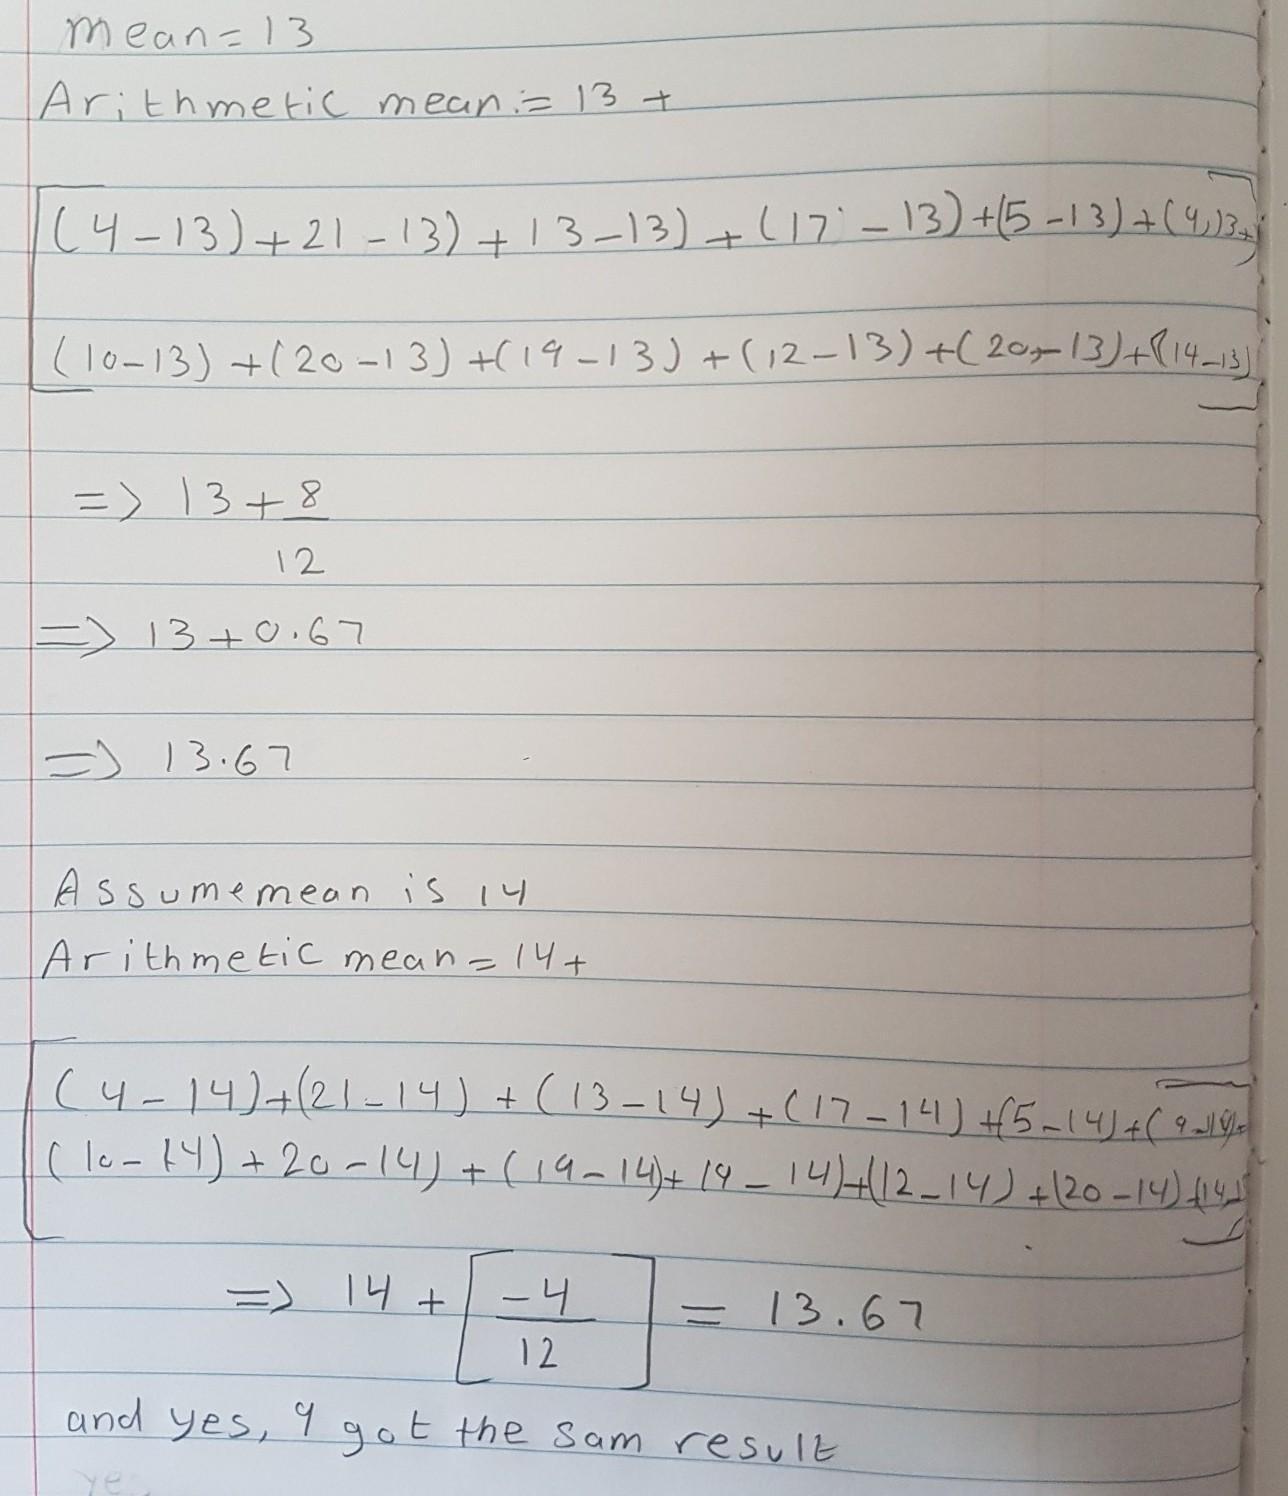 mean = 13
Arithmetic mean := 13 +
(4 - 13) + 21 - 13) + 13 - 13) + (17 - 13) + (5 - 13) + (9,)3+
(10-13) + (20-13) + (19-13) + (12-13) + (20,-13) + (14-13)
=> 13 + 8
12
=> 13 + 0.67
=> 13.67
Assumemean is 14
Arithmetic mean = 14 +
(4 - 14) + (21 - 14) + (13 - 14) + (17 - 14) + (5 - 14) + (9-14)+
(10 - 14) + 20 - 14) + (19 - 14) + 19 - 14) + (12 - 14) + (20 - 14) + (14-
=> 14 + [ -4 ] = 13.67
12
and yes, 9 got the sam result
ye